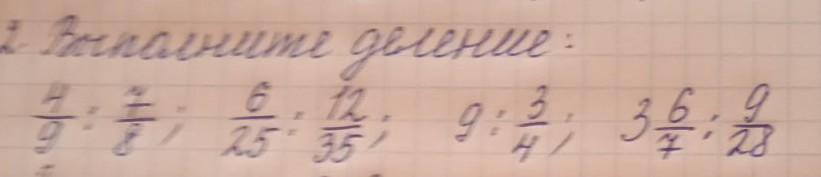 2. Выполните деление:
4/9 : 7/8; 6/25 : 12/35; 9 : 3/4; 3 6/7 : 9/28